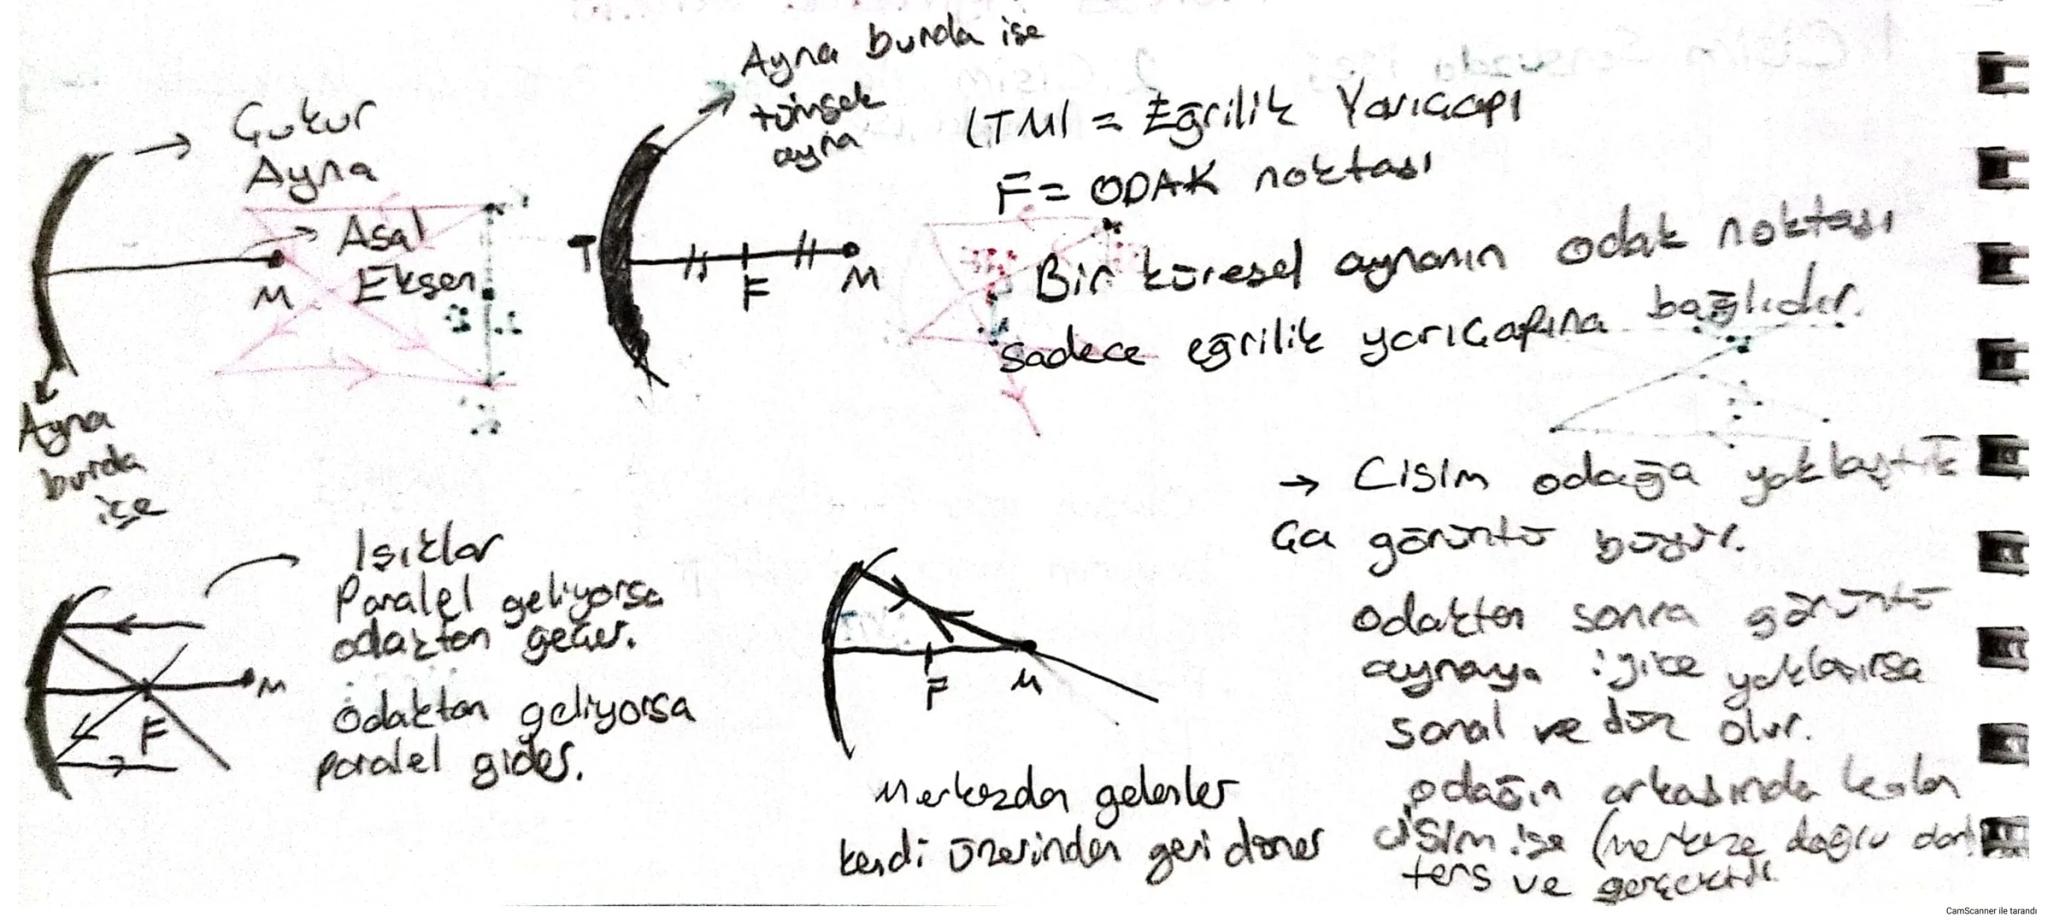 Çukur
Ayna
Asal
Eksen
M
Ayna
burda
ise
Ayna burda ise
tümsek
ayna
T
F
M
|TM| = Eğrilik Yarıçapı
F = ODAK noktası
Bir küresel aynanın odak noktası
sadece eğrilik yarıçapına bağlıdır.
→ Cisim odağa yaklaştık
ça görüntü büyür.
odaktan sonra görüntü
aynaya iyice yaklaşırsa
sanal ve düz olur.
odağın arkasında kalan
cisim ise (merkeze doğru
ters ve gerçektir.
Işıklar
Paralel geliyorsa
odaktan geçer.
odaktan geliyorsa
paralel gider.
M
F
F
M
Merkezden gelenler
kendi üzerinden geri döner
CamScanner ile tarandı